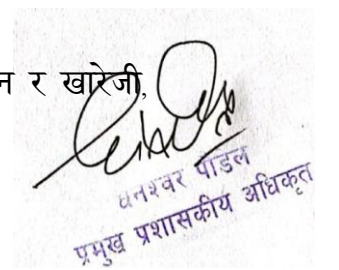 न र खारेजी,
धनेश्वर पौडेल
प्रमुख प्रशासकीय अधिकृत